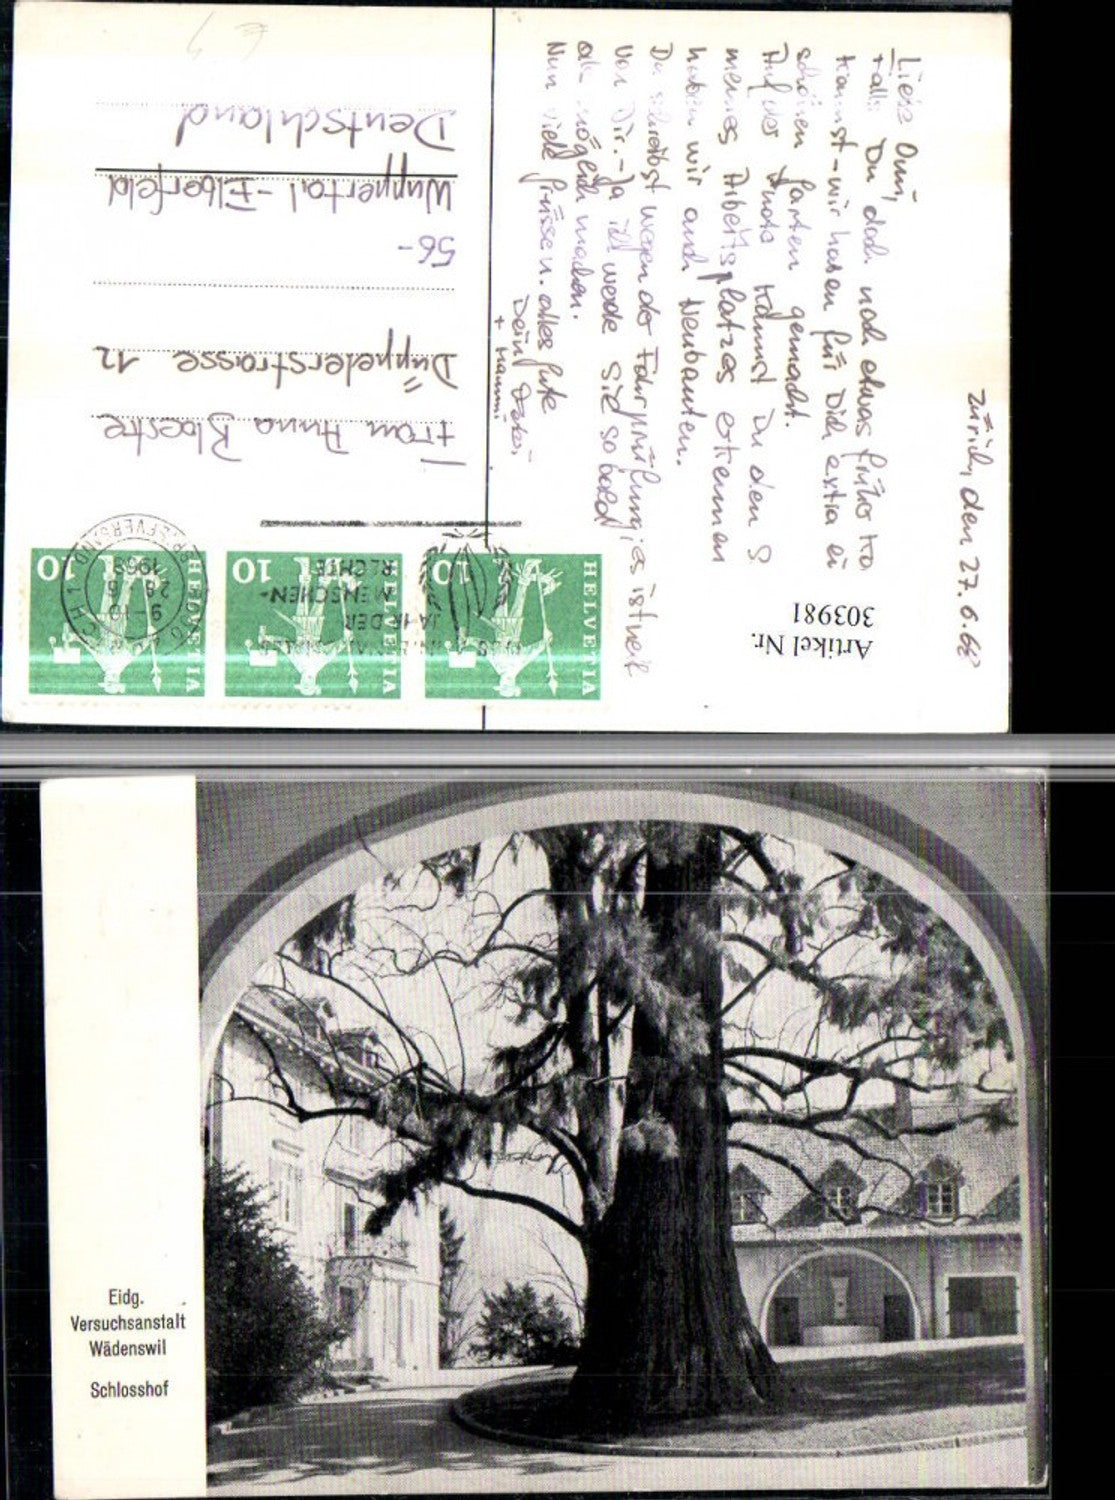 Zürich, den 27.6.68
Liebe Omi,
Falls Du doch noch etwas früher
kannst - wir haben für Dich extra ei
schönen Garten gemacht.
Auf der Photo kannst Du den
meines Arbeitsplatzes erkennen
haben wir auch Neubauten.
Du schreibst wegen der Fahrprüfung; es ist
von Dir. - Ja ich werde sie so bald
als möglich machen.
Nun viele Grüsse u. alles Gute
Dein
+ Mammi
Frau Anna
Düppelerstrasse 12
56-
Wuppertal-Elberfeld
Deutschland
HELVETIA 10
HELVETIA 10
HELVETIA 10
JAHR DER
MENSCHEN-
RECHTE
BRIEFVERSAND
1968
Artikel Nr.
303981
Eidg.
Versuchsanstalt
Wädenswil
Schlosshof